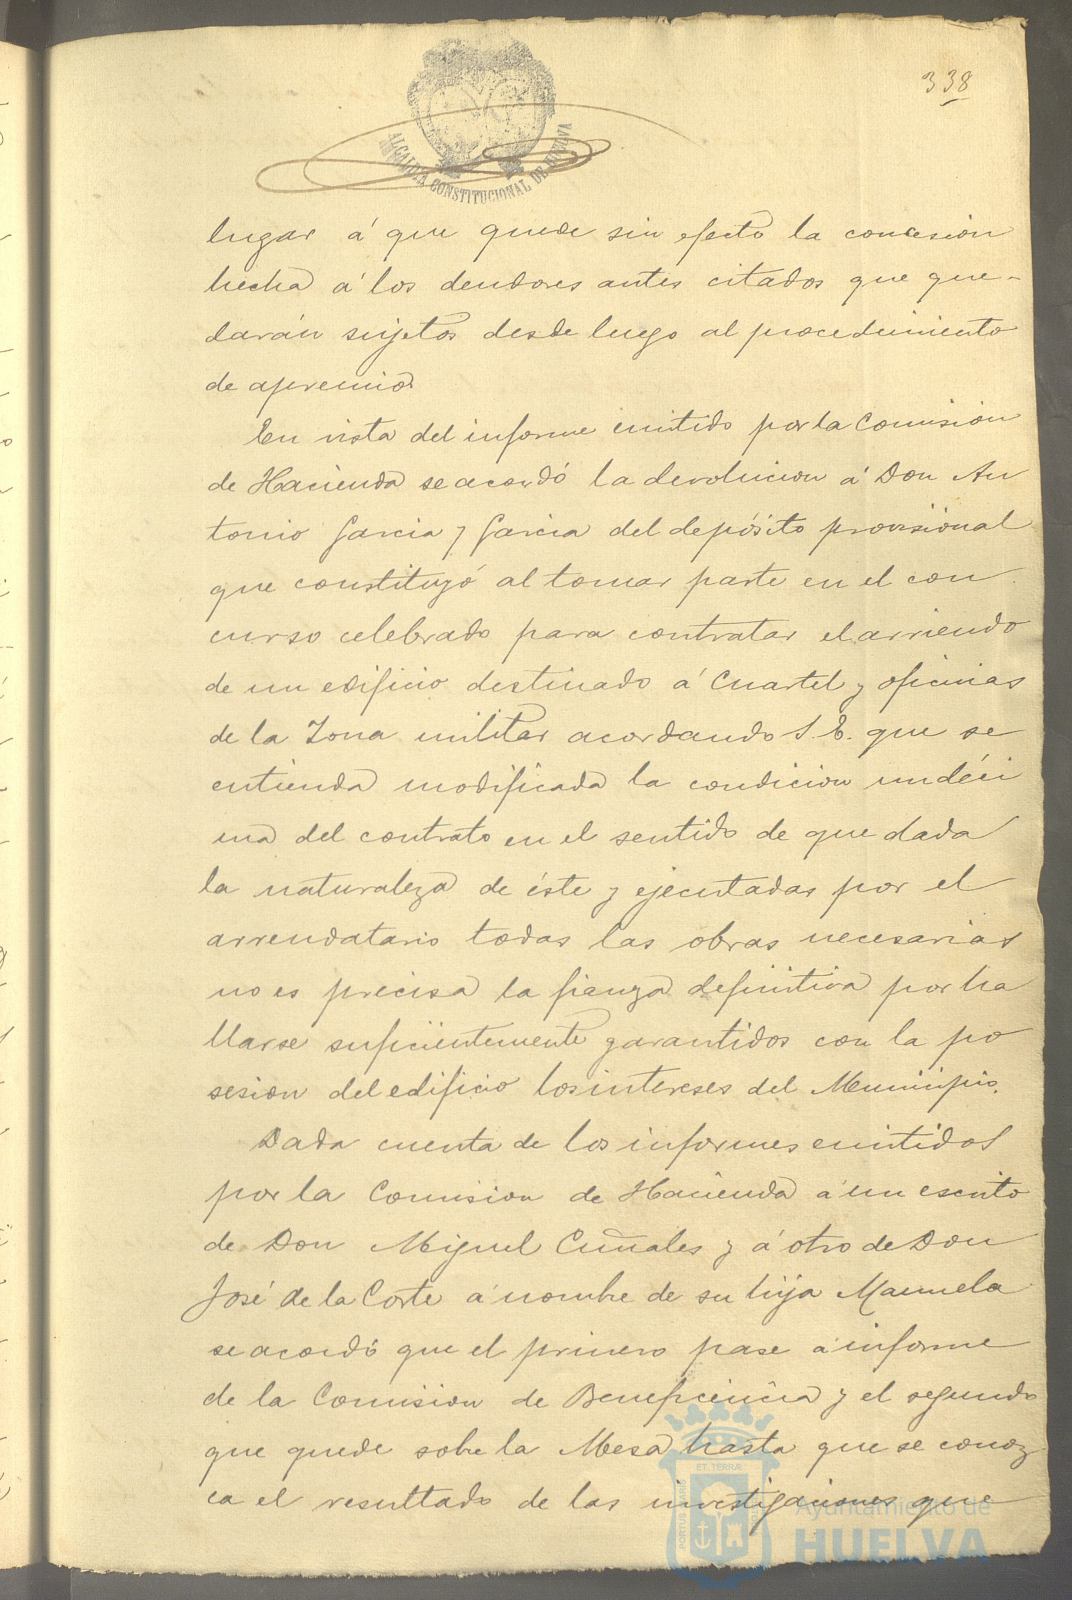 338
ALCALDIA CONSTITUCIONAL DE HUELVA
lugar á que quede sin efecto la concesion
hecha á los deudores antes citados que que-
darán sujetos desde luego al procedimiento
de apremio.
En vista del informe emitido por la Comision
de Hacienda se acordó la devolucion á Don An
tonio Garcia y Garcia del depósito provisional
que constituyó al tomar parte en el con
curso celebrado para contratar el arriendo
de un edificio destinado á Cuartel y oficinas
de la Zona militar acordando S. E. que se
entienda modificada la condicion undéci
ma del contrato en el sentido de que dada
la naturaleza de éste y ejecutadas por el
arrendatario todas las obras necesarias
no es precisa la fianza definitiva por ha
llarse suficientemente garantidos con la po
sesion del edificio los intereses del Municipio.
Dada cuenta de los informes emitidos
por la Comision de Hacienda á un escrito
de Don Miguel y á otro de Don
José de la Corte á nombre de su hija Manuela
se acordó que el primero pase á informe
de la Comision de Beneficencia y el segundo
que quede sobre la Mesa hasta que se conoz
ca el resultado de las investigaciones que
Ayuntamiento de
HUELVA